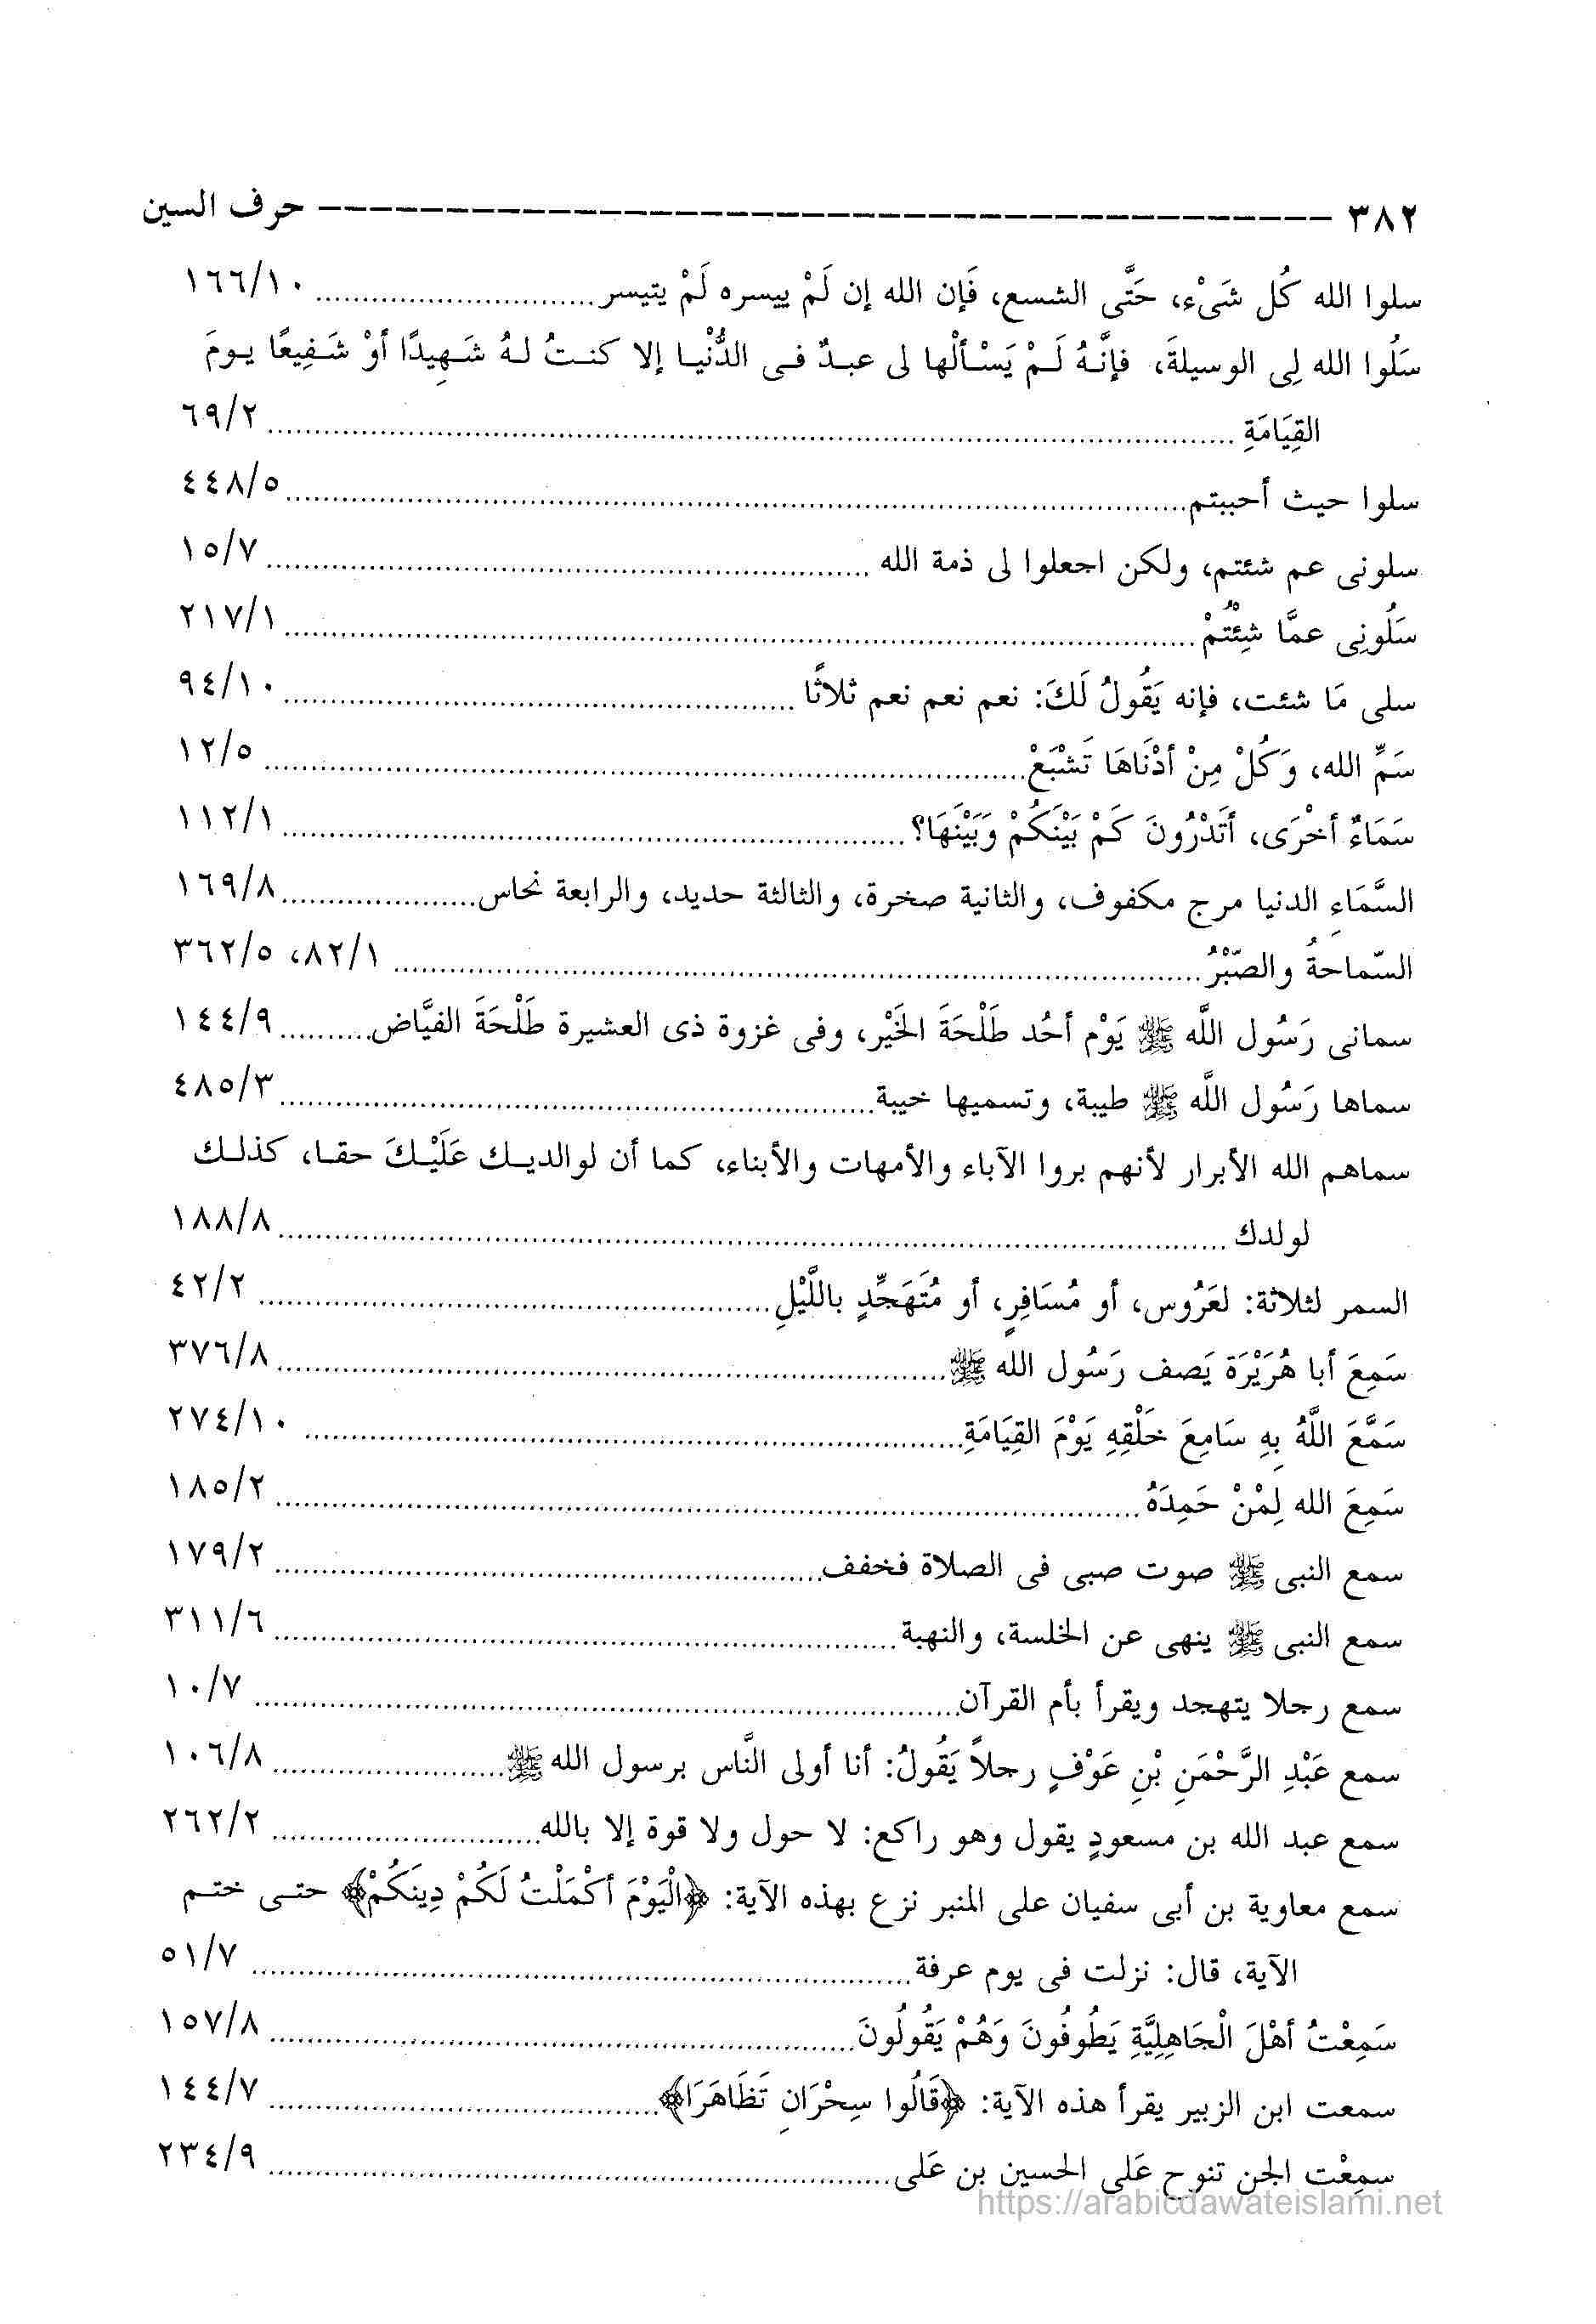 ٣٨٢ ---------------------------------------- حرف السين
سلوا الله كُل شَىْء، حَتَّى الشسع، فَإن الله إن لَمْ ييسره لَمْ يتيسر ............ ١٦٦/١٠
سَلُوا الله لِى الوسيلةَ، فإنَّـهُ لَـمْ يَسْـألْها لى عبـدٌ فـى الدُّنْيـا إلا كنـتُ لـهُ شَـهِيدًا أوْ شَـفِيعًا يـومَ
القِيَامَةِ ............ ٦٩/٢
سلوا حيث أحببتم ............ ٤٤٨/٥
سلونى عم شئتم، ولكن اجعلوا لى ذمة الله ............ ١٥/٧
سَلُونِى عمَّا شِئْتُمْ ............ ٢١٧/١
سلى مَا شئت، فإنه يَقُولُ لَكَ: نعم نعم نعم ثلاثًا ............ ٩٤/١٠
سَمِّ الله، وَكُلْ مِنْ أدْنَاهَا تَشْبَعْ ............ ١٢/٥
سَمَاءٌ أخْرَى، أتَدْرُونَ كَمْ بَيْنَكُمْ وَبَيْنَهَا؟ ............ ١١٢/١
السَّمَاءِ الدنيا مرج مكفوف، والثانية صخرة، والثالثة حديد، والرابعة نحاس ............ ١٦٩/٨
السّماحةُ والصّبْرُ ............ ٨٢/١، ٣٦٢/٥
سمانى رَسُول اللَّه ﷺ يَوْم أحُد طَلْحَةَ الخَيْر، وفى غزوة ذى العشيرة طَلْحَةَ الفيَّاض ............ ١٤٤/٩
سماها رَسُول اللَّه ﷺ طيبة، وتسميها خيبة ............ ٤٨٥/٣
سماهم الله الأبرار لأنهم بروا الآباء والأمهات والأبناء، كما أن لوالديـك عَلَيْـكَ حقـا، كذلـك
لولدك ............ ١٨٨/٨
السمر لثلاثة: لعَرُوس، أو مُسَافِرٍ، أو مُتَهَجِّدٍ باللَّيْلِ ............ ٤٢/٢
سَمِعَ أبا هُرَيْرَة يَصف رَسُول الله ﷺ ............ ٣٧٦/٨
سَمَّعَ اللَّهُ بِهِ سَامِعَ خَلْقِهِ يَوْمَ القِيَامَةِ ............ ٢٧٤/١٠
سَمِعَ الله لِمْنْ حَمِدَهُ ............ ١٨٥/٢
سمع النبى ﷺ صوت صبى فى الصلاة فخفف ............ ١٧٩/٢
سمع النبى ﷺ ينهى عن الخلسة، والنهبة ............ ٣١١/٦
سمع رجلا يتهجد ويقرأ بأم القرآن ............ ١٠/٧
سمع عَبْدِ الرَّحْمَنِ بْنِ عَوْفٍ رجلاً يَقُولُ: أنا أولى النَّاس برسول الله ﷺ ............ ١٠٦/٨
سمع عبد الله بن مسعودٍ يقول وهو راكع: لا حول ولا قوة إلا بالله ............ ٢٦٢/٢
سمع معاوية بن أبى سفيان على المنبر نزع بهذه الآية: ﴿الْيَوْمَ أكْمَلْتُ لَكُمْ دِينَكُمْ﴾ حتـى ختـم
الآية، قال: نزلت فى يوم عرفة ............ ٥١/٧
سَمِعْتُ أهْلَ الْجَاهِلِيَّةِ يَطُوفُونَ وَهُمْ يَقُولُونَ ............ ١٥٧/٨
سمعت ابن الزبير يقرأ هذه الآية: ﴿قَالُوا سِحْرَانِ تَظَاهَرَا﴾ ............ ١٤٤/٧
سمِعْت الجن تنوح عَلى الحسين بن عَلى ............ ٢٣٤/٩
https://arabicdawateislami.net